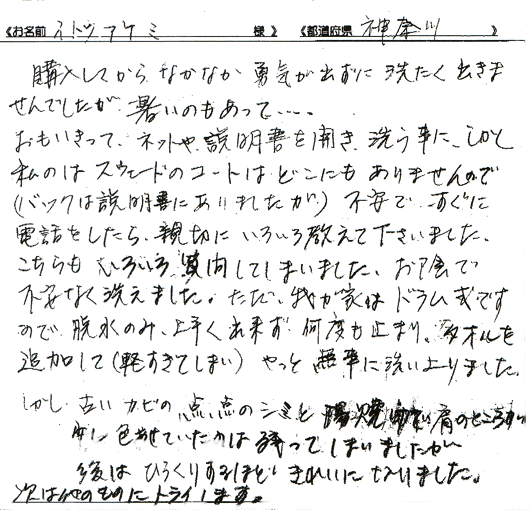 《お名前 イトウ アケミ 様》 《都道府県 神奈川 》
購入してから なかなか 勇気が出ずに 洗たく出きま
せんでしたが 暑いのもあって‥‥
おもいきって、ネットや、説明書を開き 洗う事に、しかし
私のはスウェードのコートは どこにもありませんので
(バックは説明書にありましたが) 不安で すぐに
電話をしたら、親切に いろいろ教えて下さいました、
こちらも いろいろ 質問してしまいました、お陰で
不安なく洗えました。ただ、我が家は ドラム式です
ので、脱水のみ、上手く出来ず 何度も止まり、タオルを
追加して(軽すぎてしまい) やっと 無事に洗い上りました、
しかし 古い カビの 点点の シミと 陽焼 肩のところが
少し 色あせていたのは 残ってしまいましたが
後は びっくりするほど きれいになりました。
次は他のものにトライします。